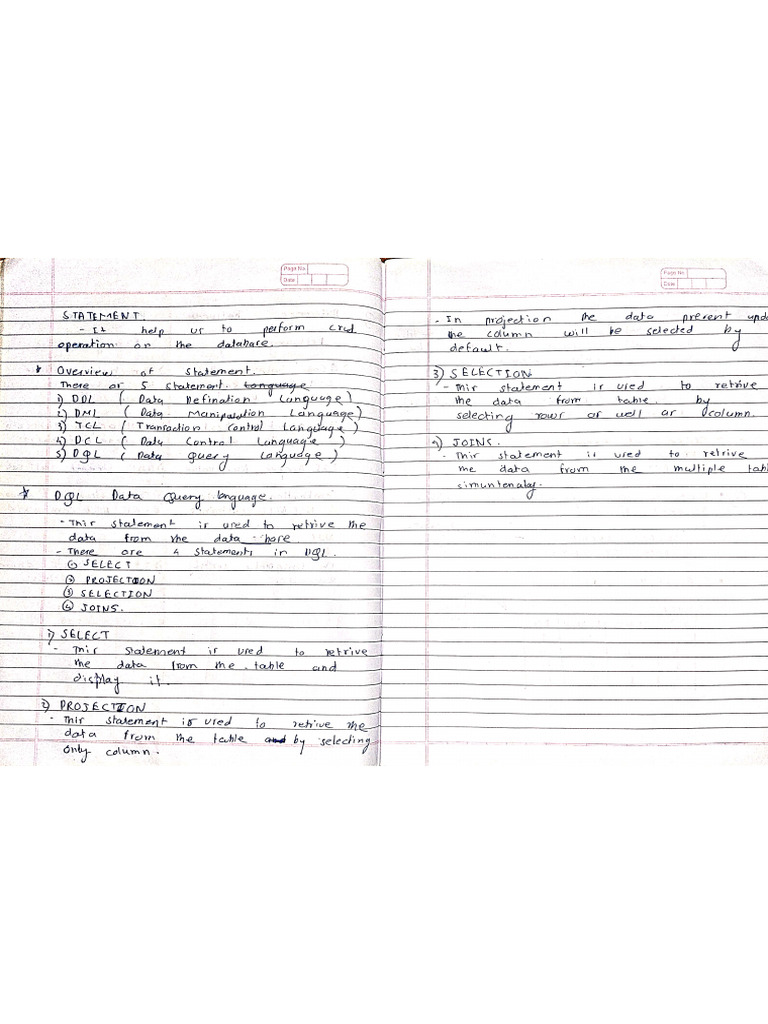 Page No.
Date
STATEMENT.
- It help us to perform crud
operation on the database.
* Overview of statement.
There are 5 statement. Language
1) DDL ( Data Defination Language)
2) DML ( Data Manipulation Language)
3) TCL ( Transaction Control Language)
4) DCL ( Data Control Language )
5) DQL ( Data Query Language )
* DQL Data Query language.
- This statement is used to retrive the
data from the data base
- There are 4 statements in DQL.
① SELECT
② PROJECTION
③ SELECTION
④ JOINS.
1) SELECT
- This statement is used to retrive
the data from the table and
display it.
2) PROJECTION
- This statement is used to retrive the
data from the table and by selecting
only column.
Page No.
Date
- In projection the data present
the column will be selected by
default.
3) SELECTION
- This statement is used to retrive
the data from table. by
selecting rows as well as column.
4) JOINS.
- This statement is used to retrive
the data from the multiple